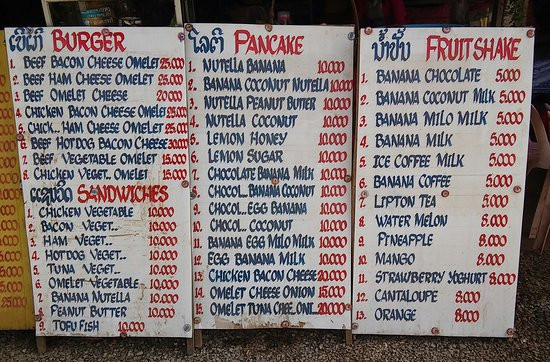 ເບີເກີ BURGER
1 BEEF BACON CHEESE OMELET 25.000
2 BEEF HAM CHEESE OMLET 25.000
3 BEEF OMELET CHEESE 20.000
4 CHICKEN BACON CHEESE OMLET 25.000
5 CHICK... HAM CHEESE OMLET 25.000
6 BEEF HOTDOG BACON CHEESE 30.000
7 BEEF VEGETABLE OMLET 15.000
8 CHICKEN VEGET... OMLET 15.000
SANDWICHES
1 CHICKEN VEGETABLE 10.000
2 BACON VEGET... 10.000
3 HAM VEGET... 10.000
4 HOTDOG VEGET... 10.000
5 TUNA VEGET... 10.000
6 OMELET VEGETABLE 10.000
7 BANANA NUTELLA 10.000
8 PEANUT BUTTER 10.000
9 TOFU FISH 10.000
PANCAKE
1 NUTELLA BANANA 10.000
2 BANANA COCONUT NUTELLA 10.000
3 NUTELLA PEANUT BUTTER 10.000
4 NUTELLA COCONUT 10.000
5 LEMON HONEY 10.000
6 LEMON SUGAR 10.000
7 CHOCOLATE BANANA MILK 10.000
8 CHOCOL... BANANA COCONUT 10.000
9 CHOCOL... EGG BANANA 10.000
10 CHOC... COCONUT 10.000
11 BANANA EGG MILO MILK 10.000
12 EGG BANANA MILK 10.000
13 CHICKEN BACON CHEESE 20.000
14 OMELET CHEESE ONION 15.000
15 OMELET TUNA CHEE..ONI... 20.000
ນ້ຳປັ່ນ FRUITSHAKE
1. BANANA CHOCOLATE 5.000
2. BANANA COCONUT MILK 5.000
3. BANANA MILO MILK 5.000
4. BANANA MILK 5.000
5. ICE COFFEE MILK 5.000
6. BANANA COFFEE 5.000
7. LIPTON TEA 5.000
8. WATER MELON 5.000
9. PINEAPPLE 8.000
10. MANGO 8.000
11. STRAWBERRY YOGHURT 8.000
12. CANTALOUPE 8.000
13. ORANGE 8.000